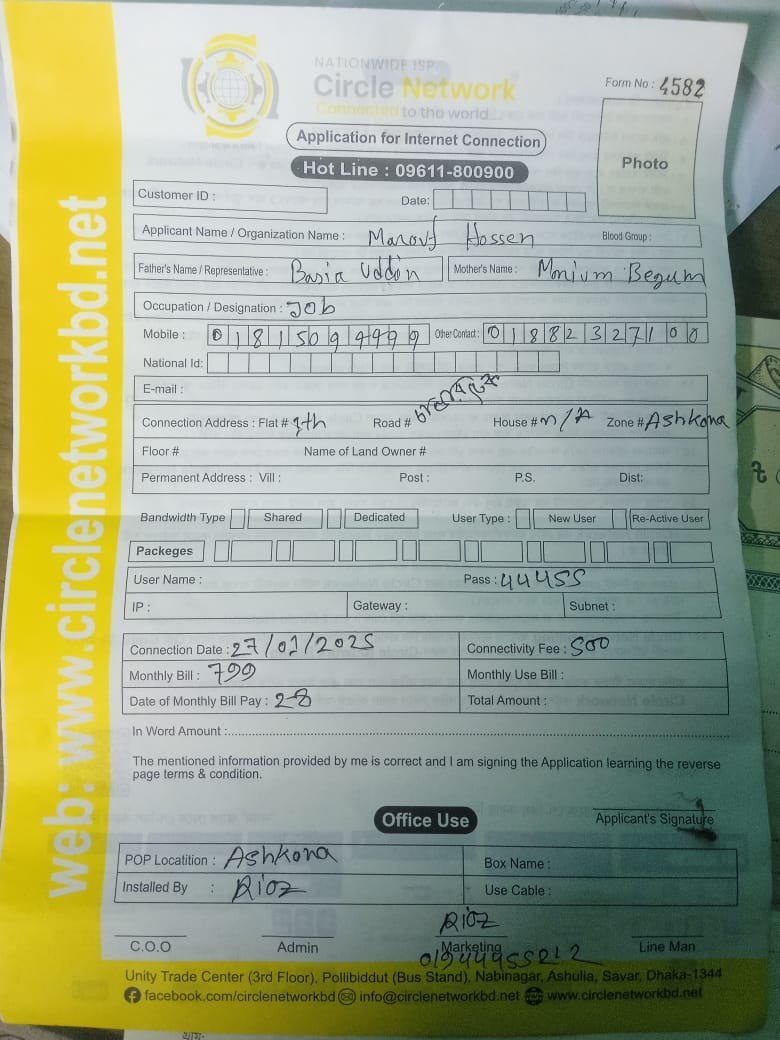 NATIONWIDE ISP
Circle Network
Connected to the world
Form No : 4582
Application for Internet Connection
Hot Line : 09611-800900
Photo
Customer ID :
Date:
Applicant Name / Organization Name : Marouf Hossen Blood Group :
Father's Name / Representative : Basia Uddin Mother's Name : Monium Begum
Occupation / Designation : Job
Mobile : 01815099499 Other Contact : 01882327100
National Id:
E-mail :
Connection Address : Flat # 7th Road # House # n/A Zone # Ashkona
Floor # Name of Land Owner #
Permanent Address : Vill : Post : P.S. Dist:
Bandwidth Type Shared Dedicated User Type : New User Re-Active User
Packeges
User Name : Pass : 44455
IP : Gateway : Subnet :
Connection Date : 27/01/2025 Connectivity Fee : 500
Monthly Bill : 799 Monthly Use Bill :
Date of Monthly Bill Pay : 2-8 Total Amount :
In Word Amount :
The mentioned information provided by me is correct and I am signing the Application learning the reverse
page terms & condition.
Office Use
Applicant's Signature
POP Locatition : Ashkona Box Name :
Installed By : Rioz Use Cable :
Rioz
C.O.O Admin Marketing Line Man
Unity Trade Center (3rd Floor), Pollibiddut (Bus Stand), Nabinagar, Ashulia, Savar, Dhaka-1344
facebook.com/circlenetworkbd info@circlenetworkbd.net www.circlenetworkbd.net
web: www.circlenetworkbd.net